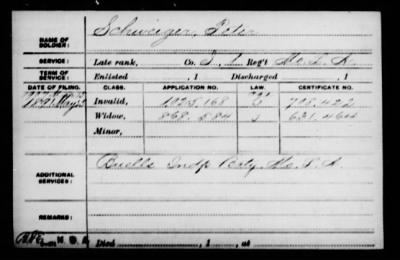 NAME OF SOLDIER: Schweiger, Peter
SERVICE: Late rank, Co. I, 1 Reg't Mo. L. A.
TERM OF SERVICE: Enlisted , 1 Discharged , 1
DATE OF FILING. CLASS. APPLICATION NO. LAW. CERTIFICATE NO.
1891 May Invalid, 1025,168 798,422
Widow, 868,884 631,464
Minor,
ADDITIONAL SERVICES: Buells Indp Baty. Mo. L. A.
REMARKS:
Died , 1 , at